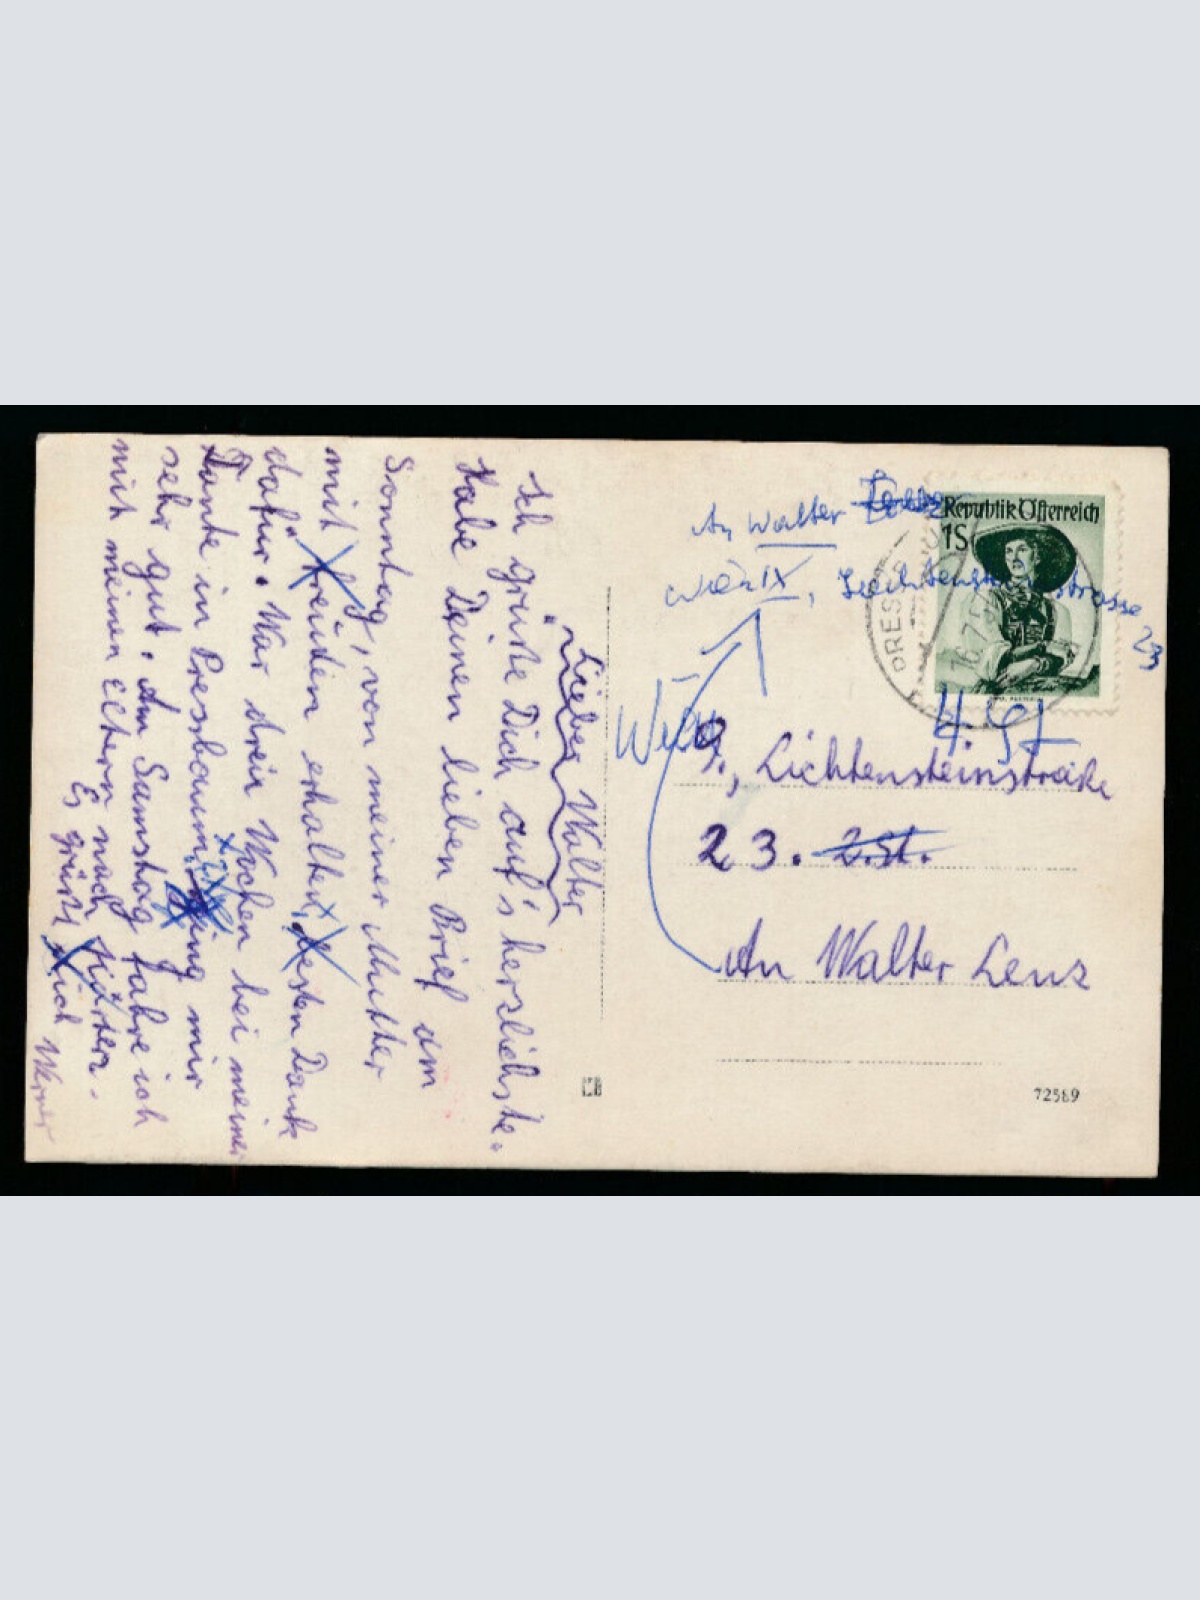 Lieber Walter
Ich grüße Dich auf's herzlichste.
Habe Deinen lieben Brief am
Sonntag, von meiner Mutter
mit Freuden erhalten, besten Dank
dafür. War drein Wochen bei meiner
Tante in Pressbaum, ging mir
sehr gut. Am Samstag fahre ich
mit meinen Eltern nach
Es grüßt Dich Werner
An Walter
Wien IX, Liechtensteinstrasse
23
Republik Österreich
1S
PRES
16.7.5
Wien
9., Lichtensteinstraße
23. 2.St.
An Walter Lenz
72589